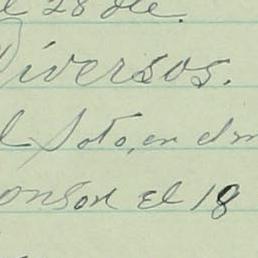 28 de
Diversos.
Soto, en el m
onson el 18